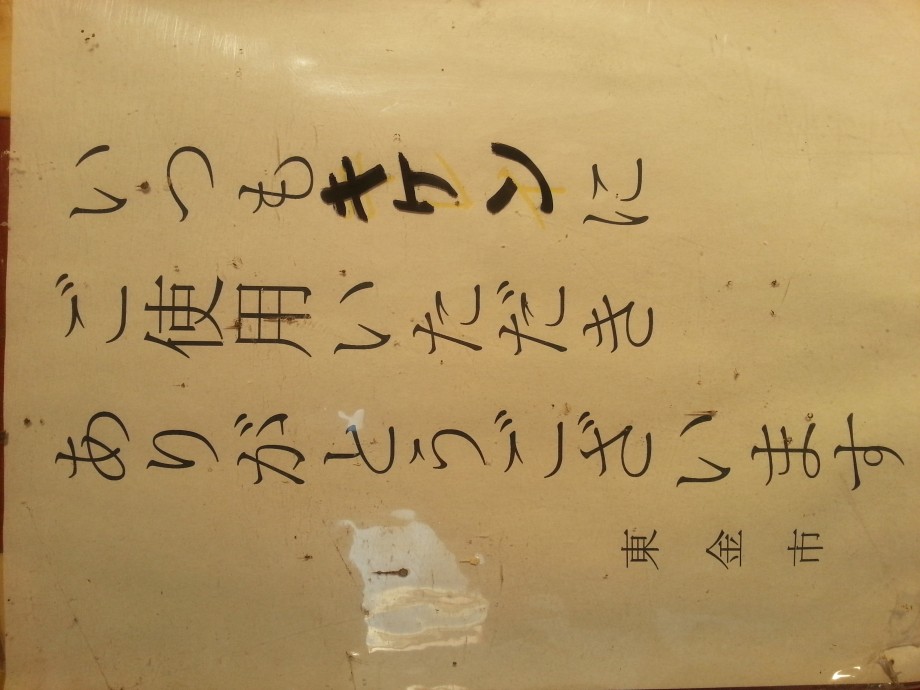 いつもキケンに
ご使用いただき
ありがとうございます
東金市